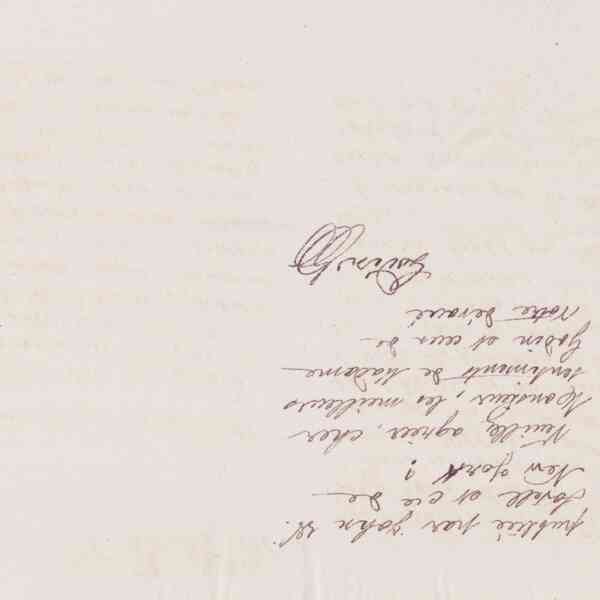 publiée par John W.
Lovell et Cie de
New York ?
Veuillez agréer, cher
Monsieur, les meilleurs
sentiments de Madame
Godin et ceux de
votre dévoué
Godin